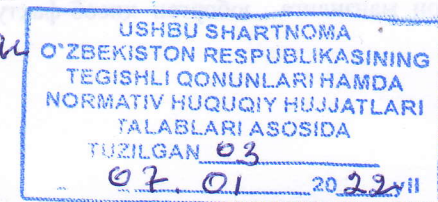 USHBU SHARTNOMA
O'ZBEKISTON RESPUBLIKASINING
TEGISHLI QONUNLARI HAMDA
NORMATIV HUQUQIY HUJJATLARI
TALABLARI ASOSIDA
TUZILGAN 03
07. 01 2022 yil